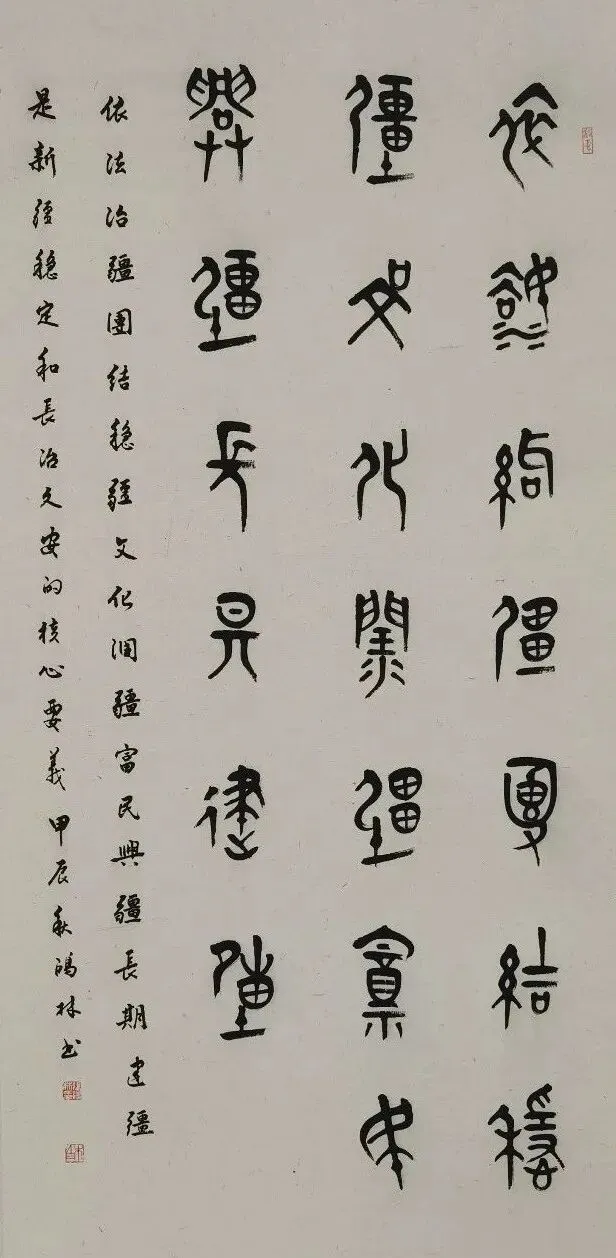 依灋治疆團結穩
疆文化潤疆富民
興疆長期建疆
依法治疆團結穩疆文化润疆富民興疆長期建疆
是新疆穩定和長治久安的核心要義甲辰秋鴻林书